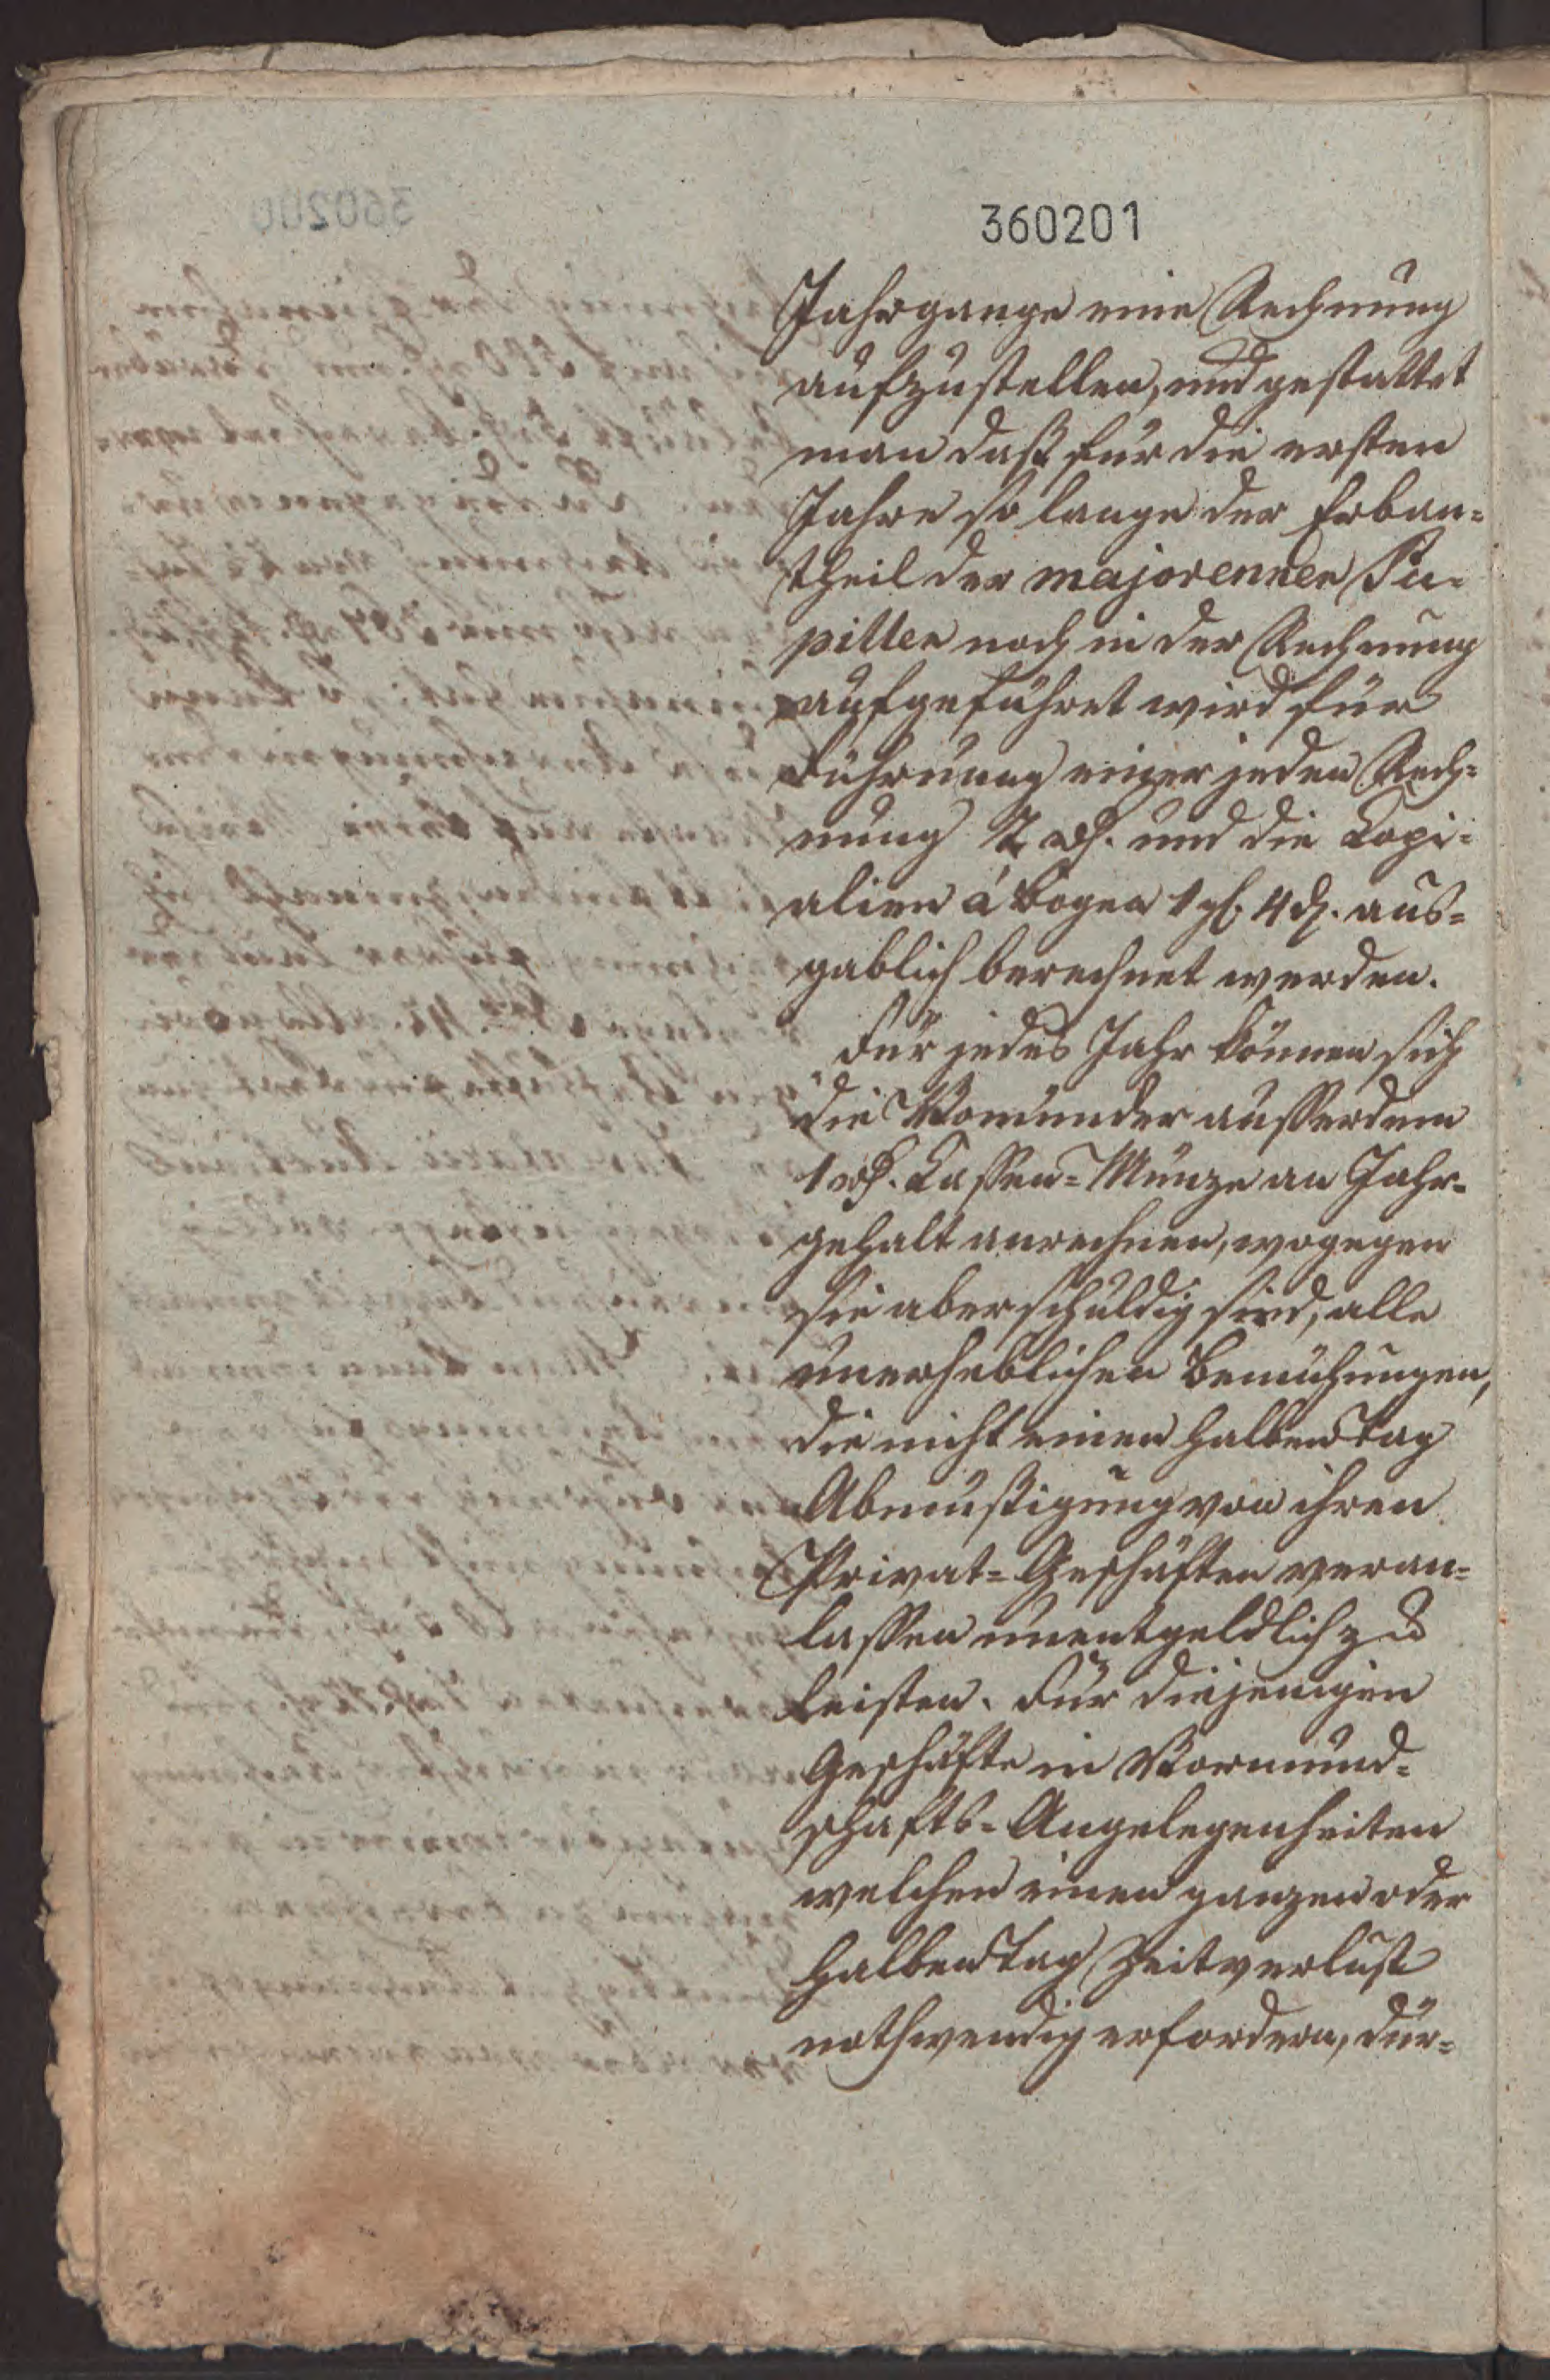 360201
Jahrgange eine Rechnung
aufzustellen, und gestattet
man daß für die ersten
Jahre so lange der Erban=
theil der majorennen Pu=
pillen noch in der Rechnung
aufgeführet wird für
Führunng einer jeden Rech=
nung 2 rth. und die Copi=
alien á Bogen 1 gl. 4 d. aus=
gablich berechnet werden.
Für jedes Jahr können sich
die Vomünder ausserdem
1 rth. Cassen=Münze an Jahr=
gehalt anrechnen, wogegen
sie aber schuldig sind, alle
unerheblichen Bemühungen,
die nicht einen halben Tag
Abmüßigung von ihren
Privat=Geschäften veran=
lassen unentgeldlich zu
leisten. Für diejenigen
Geschäfte in Vormund=
schafts=Angelegenheiten
welchen einen ganzen oder
halben Tag Zeitverlust
nothwendig erfordern, dür=